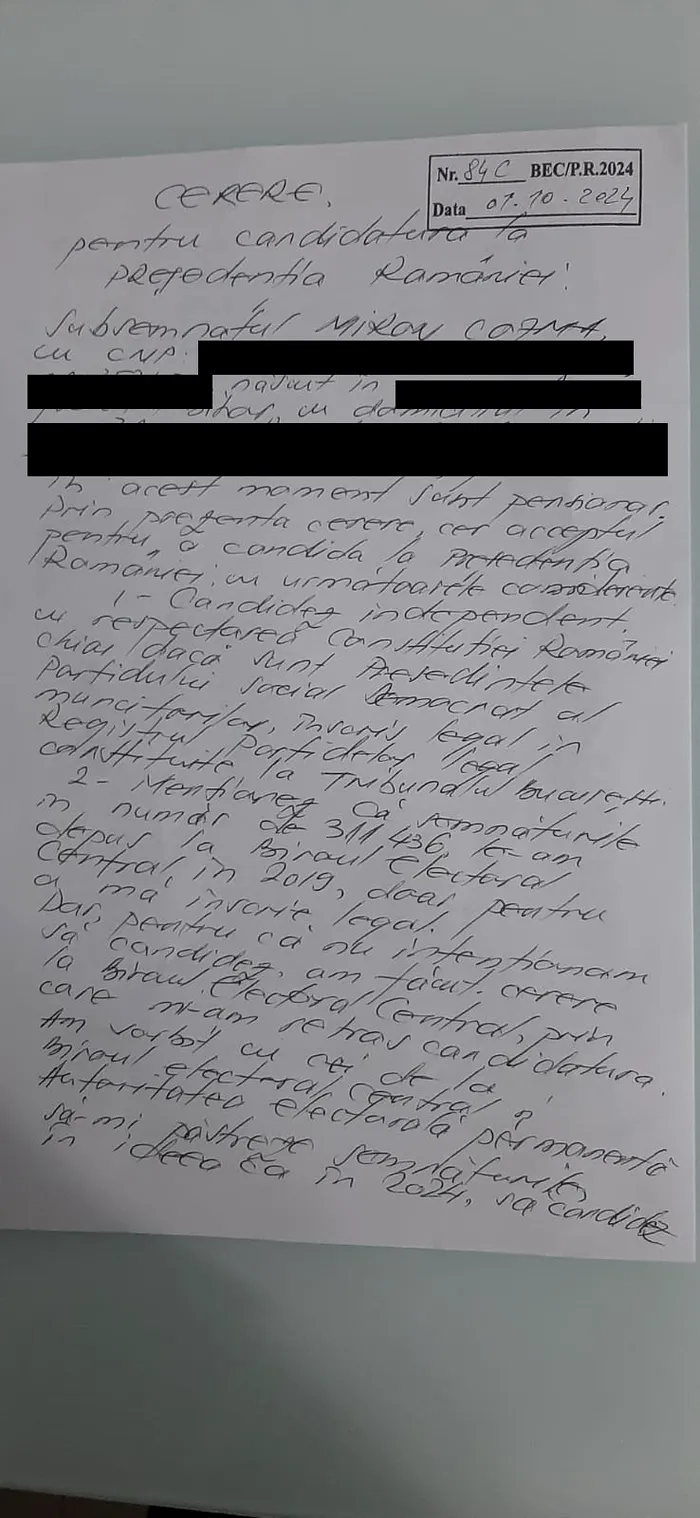 Nr. 84 C BEC/P.R.2024
Data 01.10.2024
CERERE.
pentru candidatura la
președenția României!
Subsemnatul MIRON COZMA,
cu CNP.
născut în
cu domiciliul în
în acest moment sunt pensionar.
Prin prezenta cerere, cer acceptul
pentru a candida la Președenția
României, cu următoarele considerente.
1- Candidez independent.
cu respectarea Constituției României
chiar dacă sunt Președintele
Partidului social Democrat al
muncitorilor, înscris legal în
Registrul Partidelor legal
constituite la Tribunalul București.
2- Menționez că semnăturile
în număr de 311 436, le-am
depus la Biroul electoral
Central, în 2019, doar pentru
a mă înscrie legal.
Dar, pentru că nu intenționam
să candidez, am făcut cerere
la Biroul Electoral Central, prin
care mi-am retras candidatura.
Am vorbit cu cei de la
Biroul electoral Central
Autoritatea electorală permanentă
să-mi păstreze semnăturile
în ideea că în 2024, să candidez